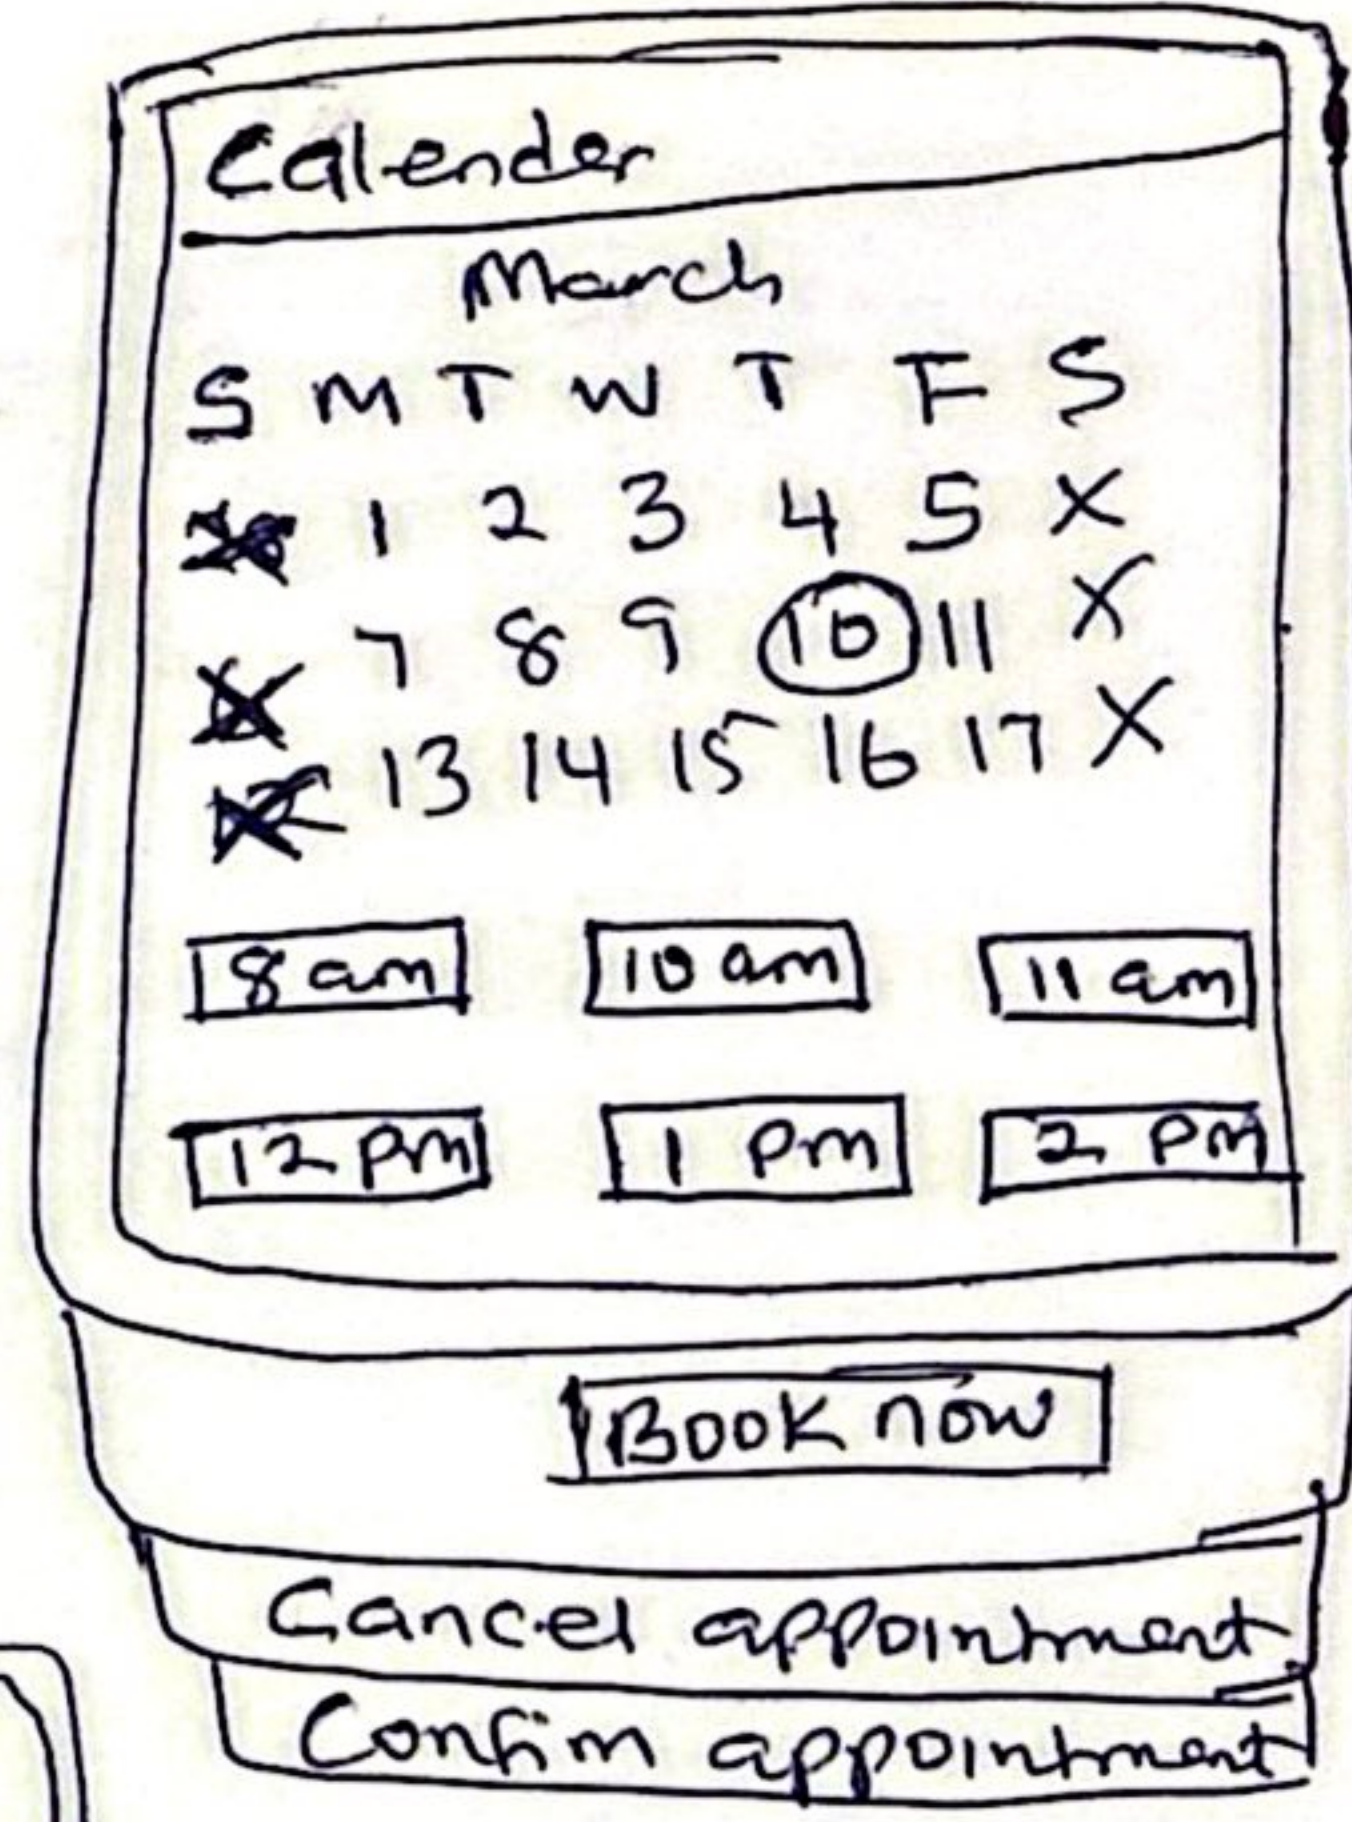 Calender
March
S M T W T F S
1 2 3 4 5 X
7 8 9 10 11 X
13 14 15 16 17 X
8 am 10 am 11 am
12 pm 1 pm 2 pm
Book now
Cancel appointment
Confim appointment